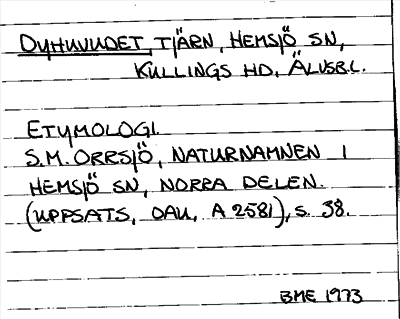 DYHUVUDET, TJÄRN, HEMSJÖ SN,
KULLINGS HD, ÄLVSB.L.
ETYMOLOGI.
S.M. ORRSJÖ, NATURNAMNEN I
HEMSJÖ SN, NORRA DELEN.
(UPPSATS, OAU, A 2581), S. 38.
BME 1973